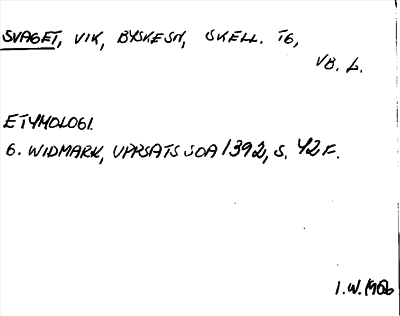 SVAGET, VIK, BYSKE SN, SKELL. TG,
VB. L.
ETYMOLOGI.
G. WIDMARK, UPPSATS SOA 1392, S. 42 F.
I.W. 1966